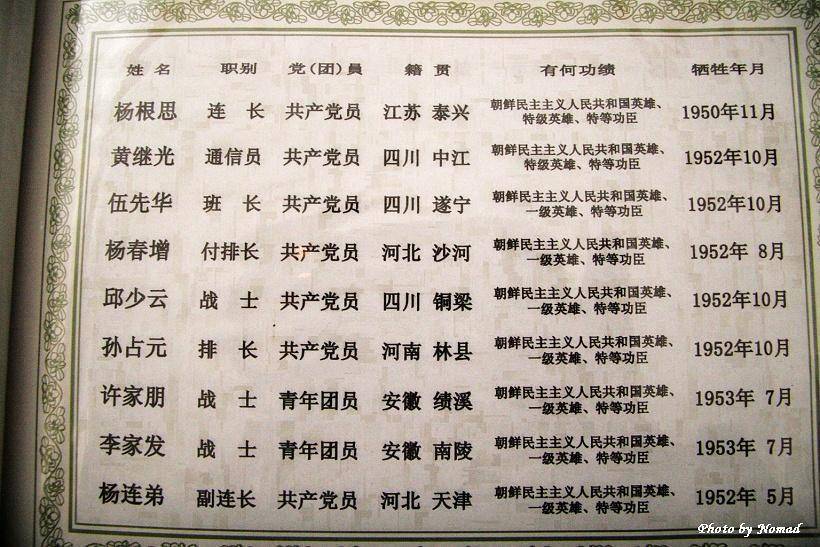 姓 名 职别 党(团)員 籍 贯 有何功绩 牺牲年月
杨根思 连 长 共产党员 江苏 泰兴 朝鲜民主主义人民共和国英雄、 1950年11月
特级英雄、特等功臣
黄继光 通信员 共产党员 四川 中江 朝鲜民主主义人民共和国英雄、 1952年10月
特级英雄、特等功臣
伍先华 班 长 共产党员 四川 遂宁 朝鲜民主主义人民共和国英雄、 1952年10月
一级英雄、特等功臣
杨春增 付排长 共产党员 河北 沙河 朝鲜民主主义人民共和国英雄、 1952年 8月
一级英雄、特等功臣
邱少云 战 士 共产党员 四川 铜梁 朝鲜民主主义人民共和国英雄、 1952年10月
一级英雄、特等功臣
孙占元 排 长 共产党员 河南 林县 朝鲜民主主义人民共和国英雄、 1952年10月
一级英雄、特等功臣
许家朋 战 士 青年团员 安徽 绩溪 朝鲜民主主义人民共和国英雄、 1953年 7月
一级英雄、特等功臣
李家发 战 士 青年团员 安徽 南陵 朝鲜民主主义人民共和国英雄、 1953年 7月
一级英雄、特等功臣
杨连弟 副连长 共产党员 河北 天津 朝鲜民主主义人民共和国英雄、 1952年 5月
一级英雄、特等功臣
Photo by Nomad